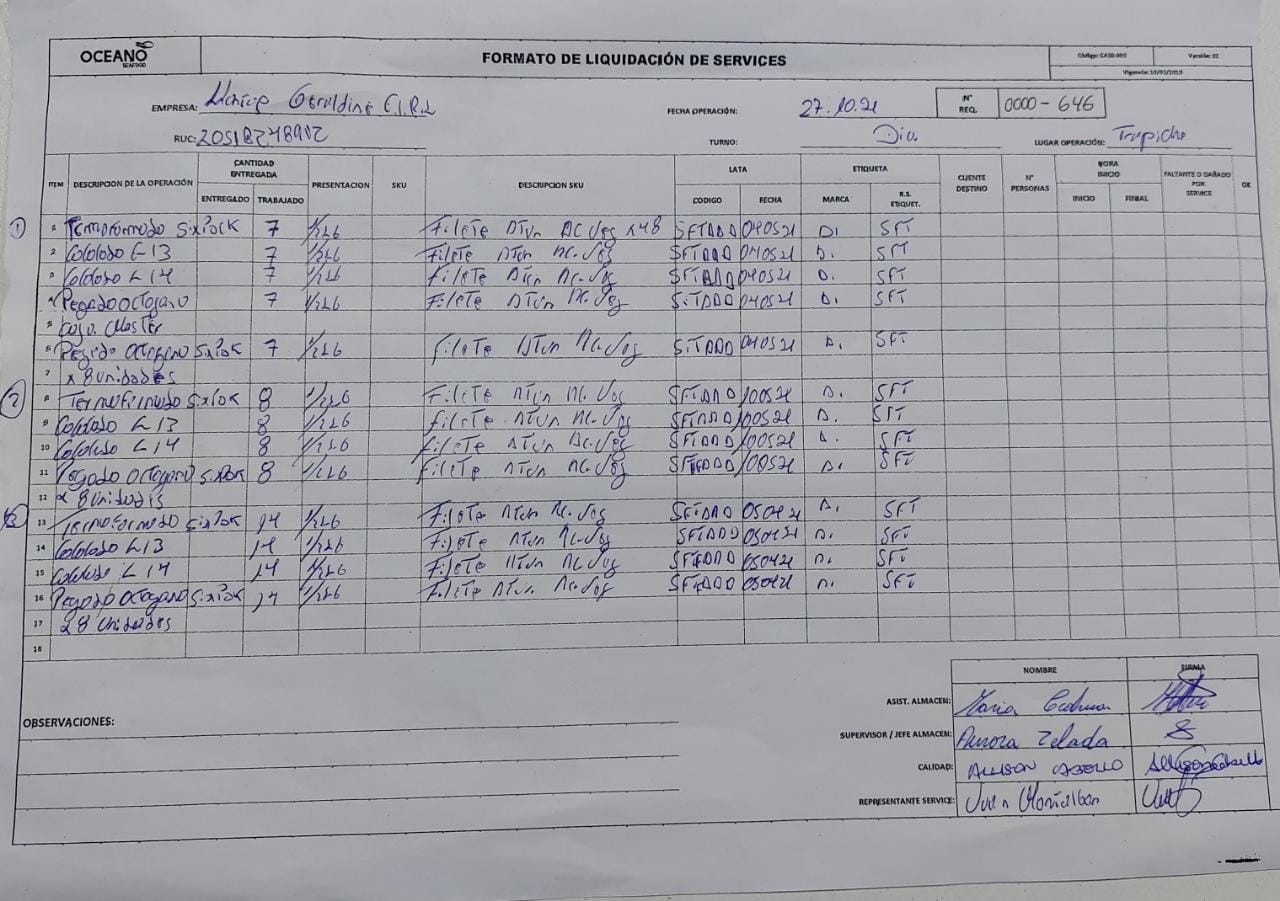 OCEANO
SEAFOOD
FORMATO DE LIQUIDACIÓN DE SERVICES
Versión: 02
Vigencia: 10/05/2019
EMPRESA: Geraldine E.I.R.L
FECHA OPERACIÓN: 27.10.21
N° REQ. 0000-646
RUC: 20518248902
TURNO: Dia.
LUGAR OPERACIÓN: Trapiche
ITEM DESCRIPCION DE LA OPERACIÓN CANTIDAD ENTREGADA PRESENTACION SKU DESCRIPCION SKU LATA ETIQUETA CLIENTE DESTINO N° PERSONAS HORA INICIO FALTANTE O DAÑADO POR SERVICE OK
ENTREGADO TRABAJADO CODIGO FECHA MARCA R.S. ETIQUET. INICIO FINAL
1 1 Termoformado Sixpack 7 1/2x6 Filete Atun Ac. Veg x48 SFTADD 040521 D. SFT
2 Colocado L-13 7 1/2x6 Filete Atun Ac. Veg SFTADD 040521 D. SFT
3 Colocado L 14 7 1/2x6 Filete Atun Ac. Veg SFTADD 040521 D. SFT
4 Pegado Octogano 7 1/2x6 Filete Atun Ac. Veg SFTADD 040521 D. SFT
5 caja. Master
6 Pegado Octogano Sixpak 7 1/2x6 Filete Atun Ac. Veg SFTADD 040521 D. SFT
7 x 8 unidades
2 8 Termoformado Sixpak 8 1/2x6 Filete Atun Ac. Veg SFTADD 100521 D. SFT
9 Colocado L 13 8 1/2x6 Filete Atun Ac. Veg SFTADD 100521 D. SFT
10 Colocado L 14 8 1/2x6 Filete Atun Ac. Veg SFTADD 100521 D. SFT
11 Pegado Octogano Sixpak 8 1/2x6 Filete Atun Ac. Veg SFTADD 100521 D. SFT
12 x 8 unidades
3 13 Termoformado Sixpak 14 1/2x6 Filete Atun Ac. Veg SFTADD 050421 D. SFT
14 Colocado L13 14 1/2x6 Filete Atun Ac. Veg SFTADD 050421 D. SFT
15 Colocado L 14 14 1/2x6 Filete Atun Ac Veg SFTADD 050421 D. SFT
16 Pegado Octogano Sixpak 14 1/2x6 Filete Atun Ac. Veg SFTADD 050421 D. SFT
17 x 8 unidades
18
NOMBRE FIRMA
OBSERVACIONES:
ASIST. ALMACEN: Maria
SUPERVISOR / JEFE ALMACEN: Aurora Zelada
CALIDAD: ALLISON CABELLO
REPRESENTANTE SERVICE: Juan Montalban